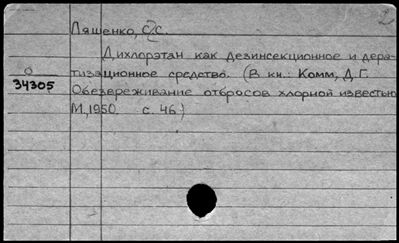 Ляшенко, С.С.
Дихлорэтан как дезинсекционное и дера-
тизационное средство. (В кн.: Комм, Д.Г.
О
34305
Обезвреживание отбросов хлорной известью
М., 1950. с. 46)